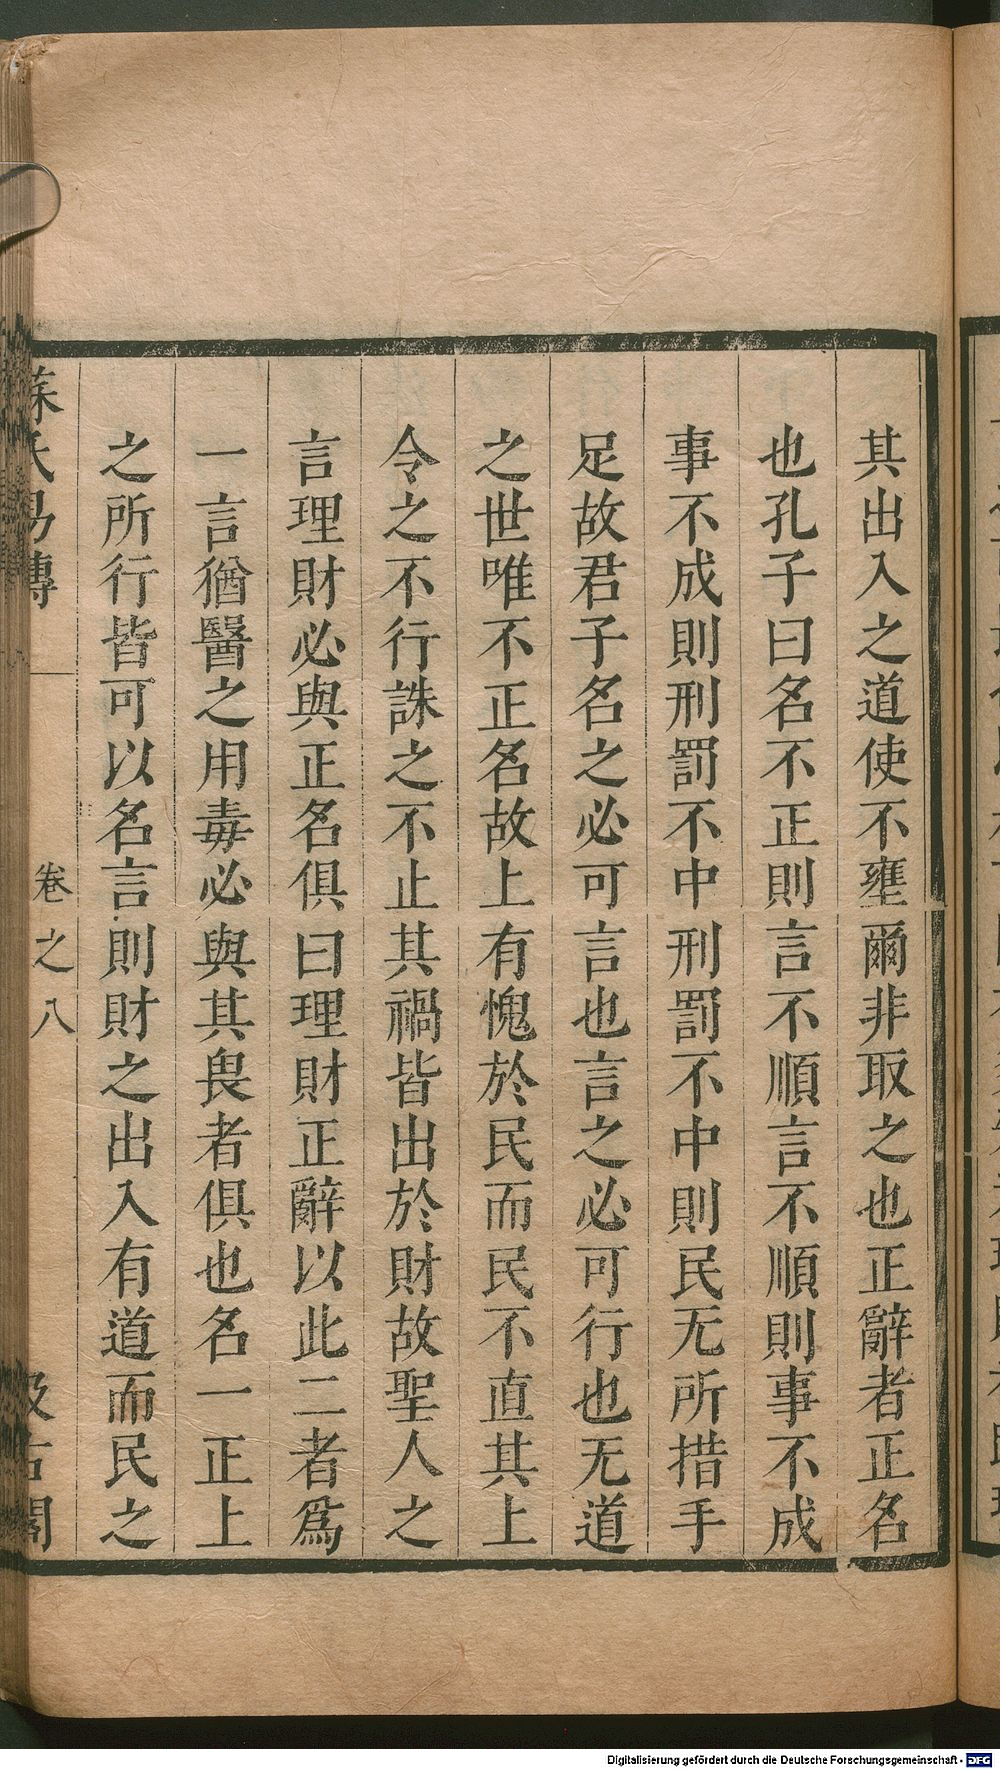 其出入之道使不壅爾非取之也正辭者正名
也孔子曰名不正則言不順言不順則事不成
事不成則刑罰不中刑罰不中則民无所措手
足故君子名之必可言也言之必可行也无道
之世唯不正名故上有愧於民而民不直其上
令之不行誅之不止其禍皆出於財故聖人之
言理財必與正名俱曰理財正辭以此二者爲
一言猶醫之用毒必與其畏者俱也名一正上
之所行皆可以名言則財之出入有道而民之
蘇氏易傳
卷之八
汲古閣
Digitalisierung gefördert durch die Deutsche Forschungsgemeinschaft - DFG